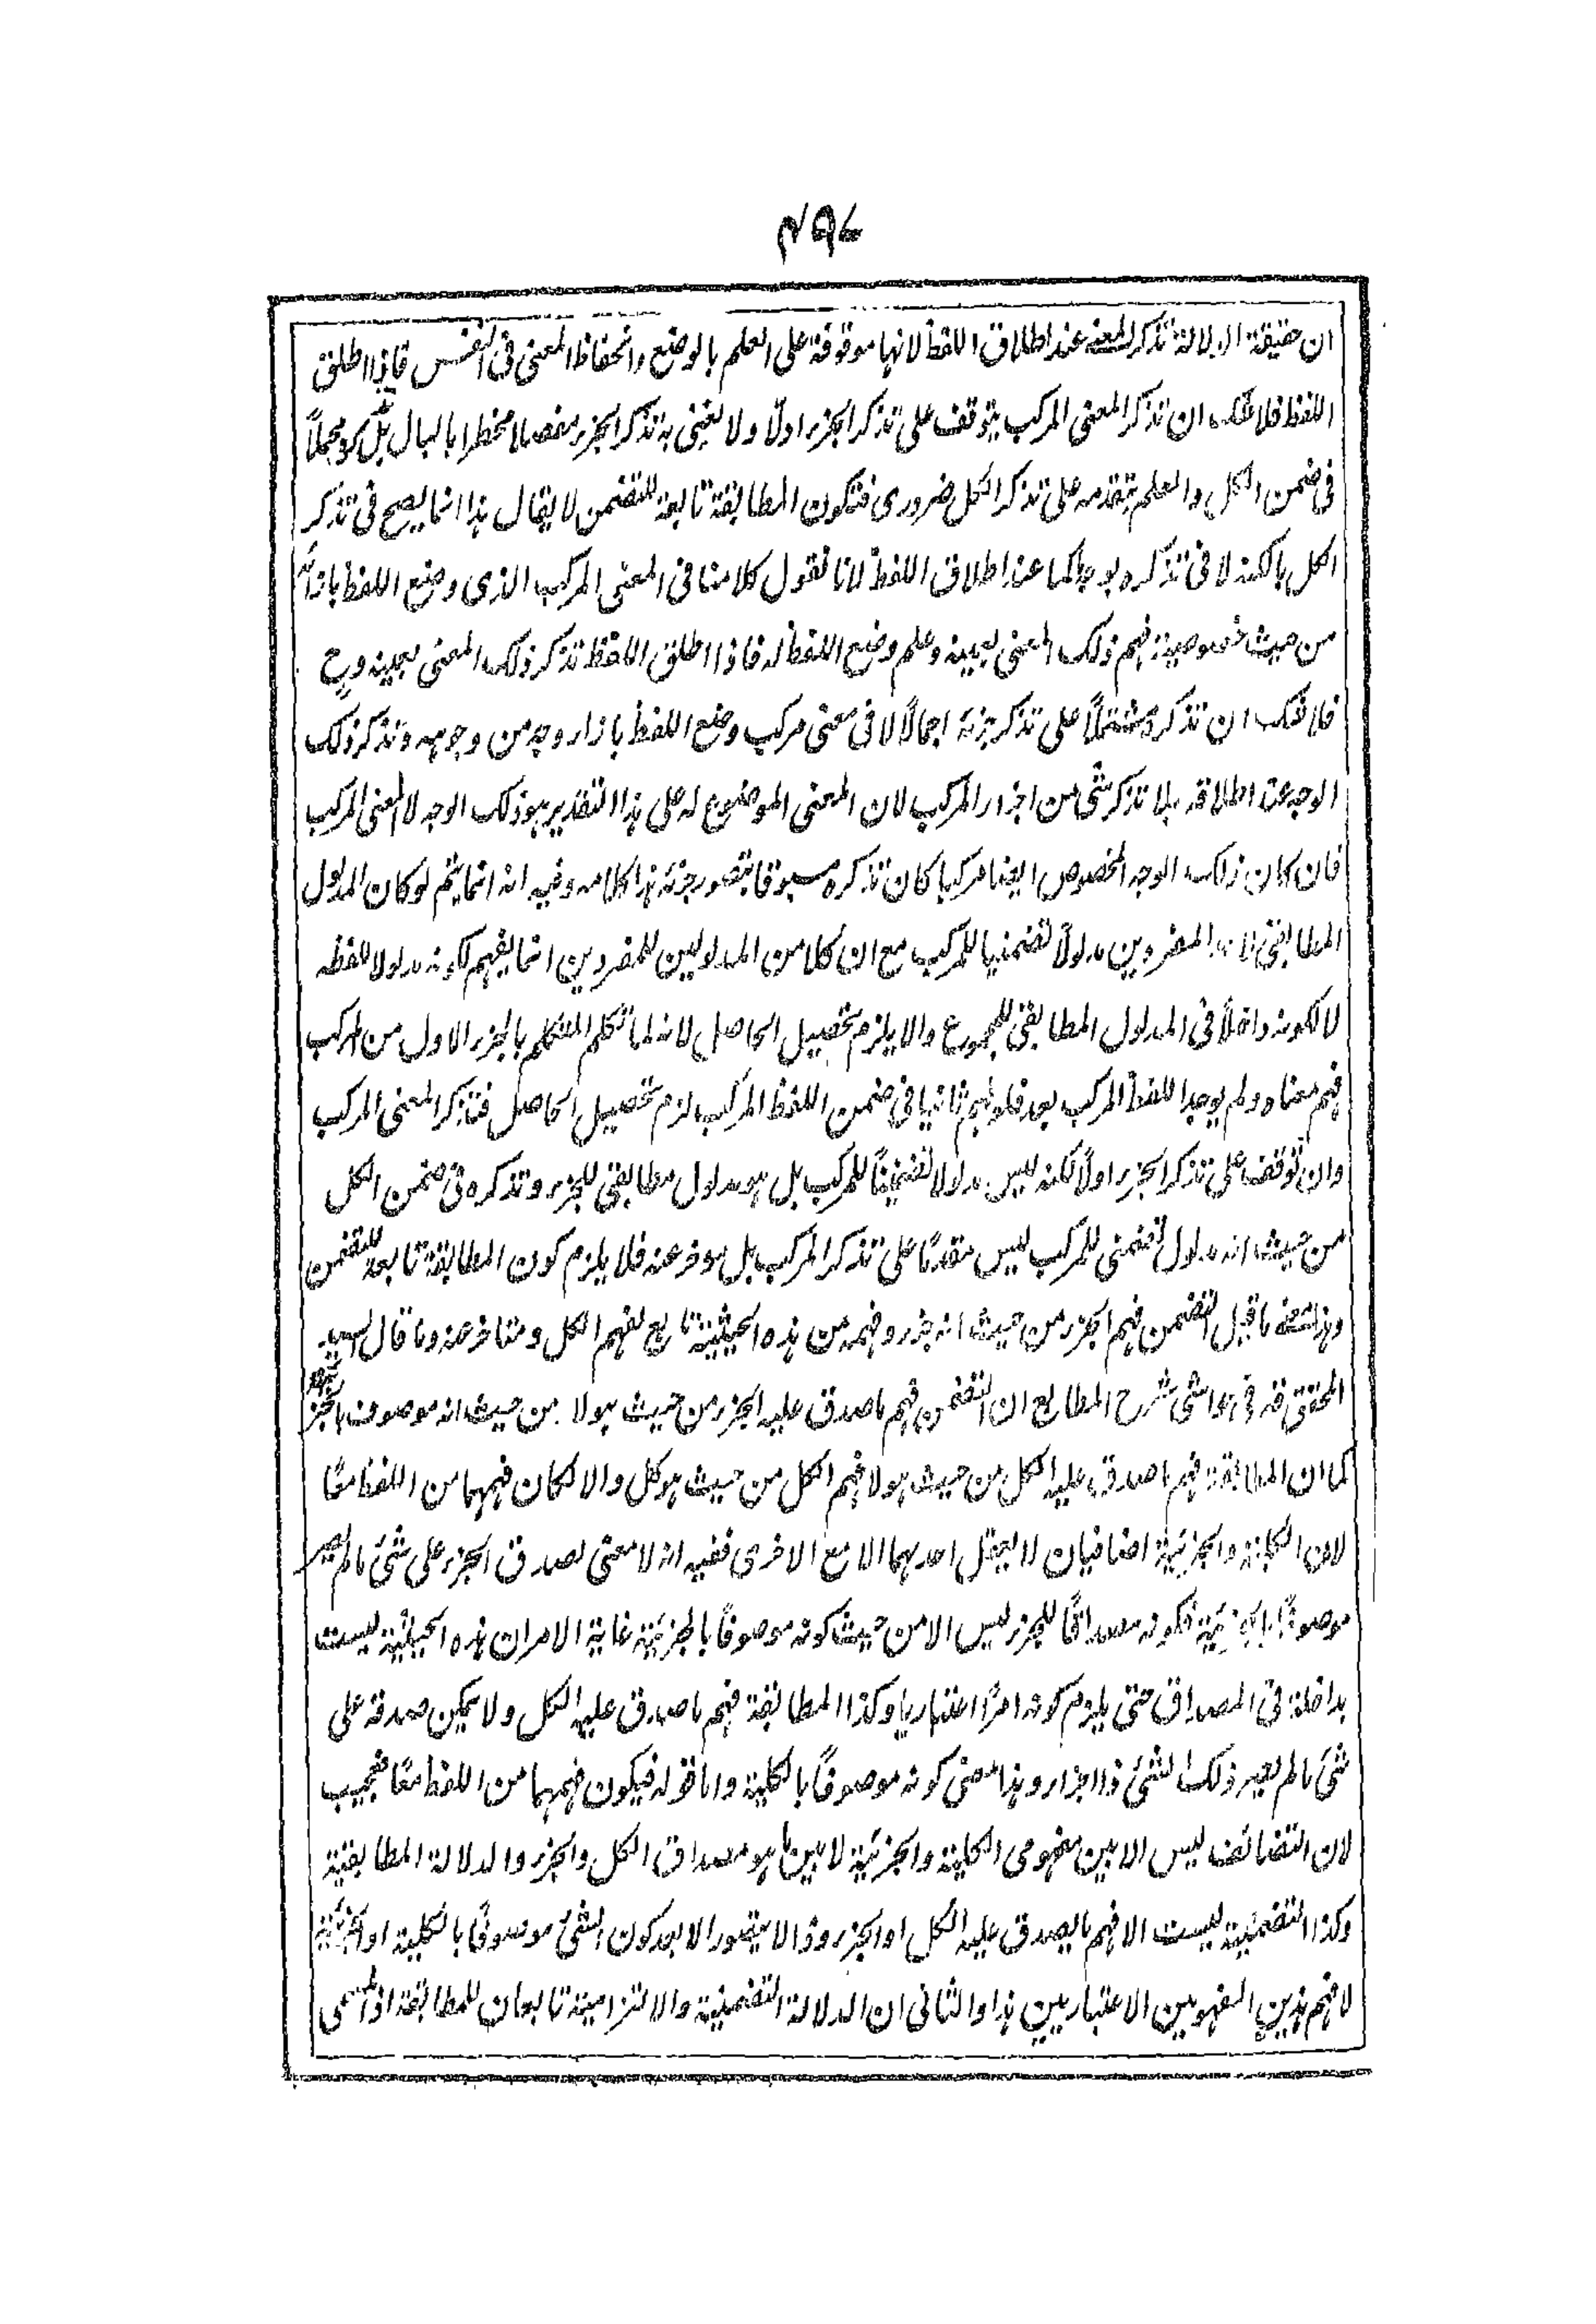 ۴۹۷
ان حقيقة الدلالة تذكر المعنى عند اطلاق اللفظ لانها موقوفة على العلم بالوضع وانحفاظ المعنى فى النفس فاذا اطلق
اللفظ فلا شك ان تذكر المعنى المركب يتوقف على تذكر الجزء اولا ولا نعنى به تذكر الجزء مفصلا مخطرا بالبال بل مجملاً
فى ضمن الكل والعلم بتقدمه على تذكر الكل ضرورى فتكون المطابقة تابعة للتضمن لا يقال هذا انما يصح فى تذكر
الكل بالكنه لا فى تذكره بوجه ما عند اطلاق اللفظ لانا نقول كلامنا فى المعنى المركب الذى وضع اللفظ بازائه
من حيث خصوصيته فهم ذلك المعنى بعينه وعلم وضع اللفظ له فاذا اطلق اللفظ تذكر ذلك المعنى بعينه وح
فلا شك ان تذكره مشتملاً على تذكر جزئه اجمالاً لا فى معنى مركب وضع اللفظ بازاء وجه من وجوهه وتذكر ذلك
الوجه عند اطلاقه بلا تذكر شئ من اجزاء المركب لان المعنى الموضوع له على هذا التقدير هو ذلك الوجه لا المعنى المركب
فان كان ذلك الوجه المخصوص ايضا مركبا كان تذكره مسبوقا بتصور جزئه هذا كلامه وفيه انه انما يتم لو كان المدلول
المطابقى المفردين مدلولاً تضمنيا للمركب مع ان كلا من المدلولين للمفردين انما يفهم لكونه مدلولا للفظه
لا لكونه داخلاً فى المدلول المطابقى للمجموع والا يلزم تحصيل الحاصل لانه لما تكلم المتكلم بالجزء الاول من المركب
فهم معناه ولم يوجد اللفظ المركب بعد فلو فهم ثانيا فى ضمن اللفظ المركب لزم تحصيل الحاصل فتذكر المعنى المركب
وان توقف على تذكر الجزء اولاً لكنه ليس مدلولا تضمنياً للمركب بل هو مدلول مطابقى للجزء وتذكره فى ضمن الكل
من حيث انه مدلول تضمنى للمركب ليس مقدماً على تذكر المركب بل مؤخر عنه فلا يلزم كون المطابقة تابعة للتضمن
وهذا معنى ما قيل التضمن فهم الجزء من حيث انه جزء وفهمه من هذه الحيثية تابع لفهم الكل ومتاخر عنه وما قال السيد
المحقق قه فى حواشى شرح المطالع ان التضمن فهم ما صدق عليه الجزء من حيث هو لا من حيث انه موصوف
كما ان المطابقة فهم ما صدق عليه الكل من حيث هو لا فهم الكل من حيث هو كل والا لكان فهمهما من اللفظ معًا
لان الكلية والجزئية اضافيان لا يعقل احدهما الا مع الاخرى ففيه انه لا معنى لصدق الجزء على شئ ما لم يصر
موصوفًا بالجزئية فكونه مصداقًا للجزء ليس الا من حيث كونه موصوفًا بالجزئية غاية الامر ان هذه الحيثية ليست
بداخلة فى المصداق حتى يلزم كونه امراً اعتباريا وكذا المطابقة فهم ما صدق عليه الكل ولا يمكن صدقه على
شئ ما لم يصر ذلك الشئ ذا اجزاء وهذا معنى كونه موصوفًا بالكلية واما قوله فيكون فهمهما من اللفظ معًا فعجيب
لان التضائف ليس الا بين مفهومى الكلية والجزئية لا بين ما هو مصداق الكل والجزء والدلالة المطابقية
وكذا التضمنية ليست الا فهم ما يصدق عليه الكل او الجزء وذا لا يتصور الا بعد كون الشئ موصوفًا بالكلية او الجزئية
لا فهم هذين المفهومين الاعتباريين هذا والثانى ان الدلالة التضمنية والالتزامية تابعان للمطابقة اذ المسمى